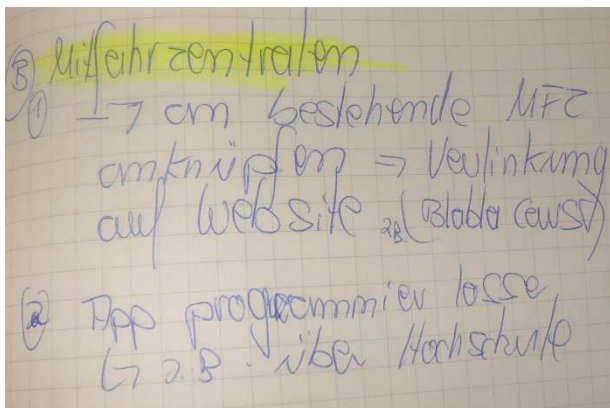 ③ Mitfahrzentralen
① → an bestehende MFZ
anknüpfen ⇒ Verlinkung
auf Website z.B. (Blabla
② App programmier lasse
↳ z.B. über Hochschule